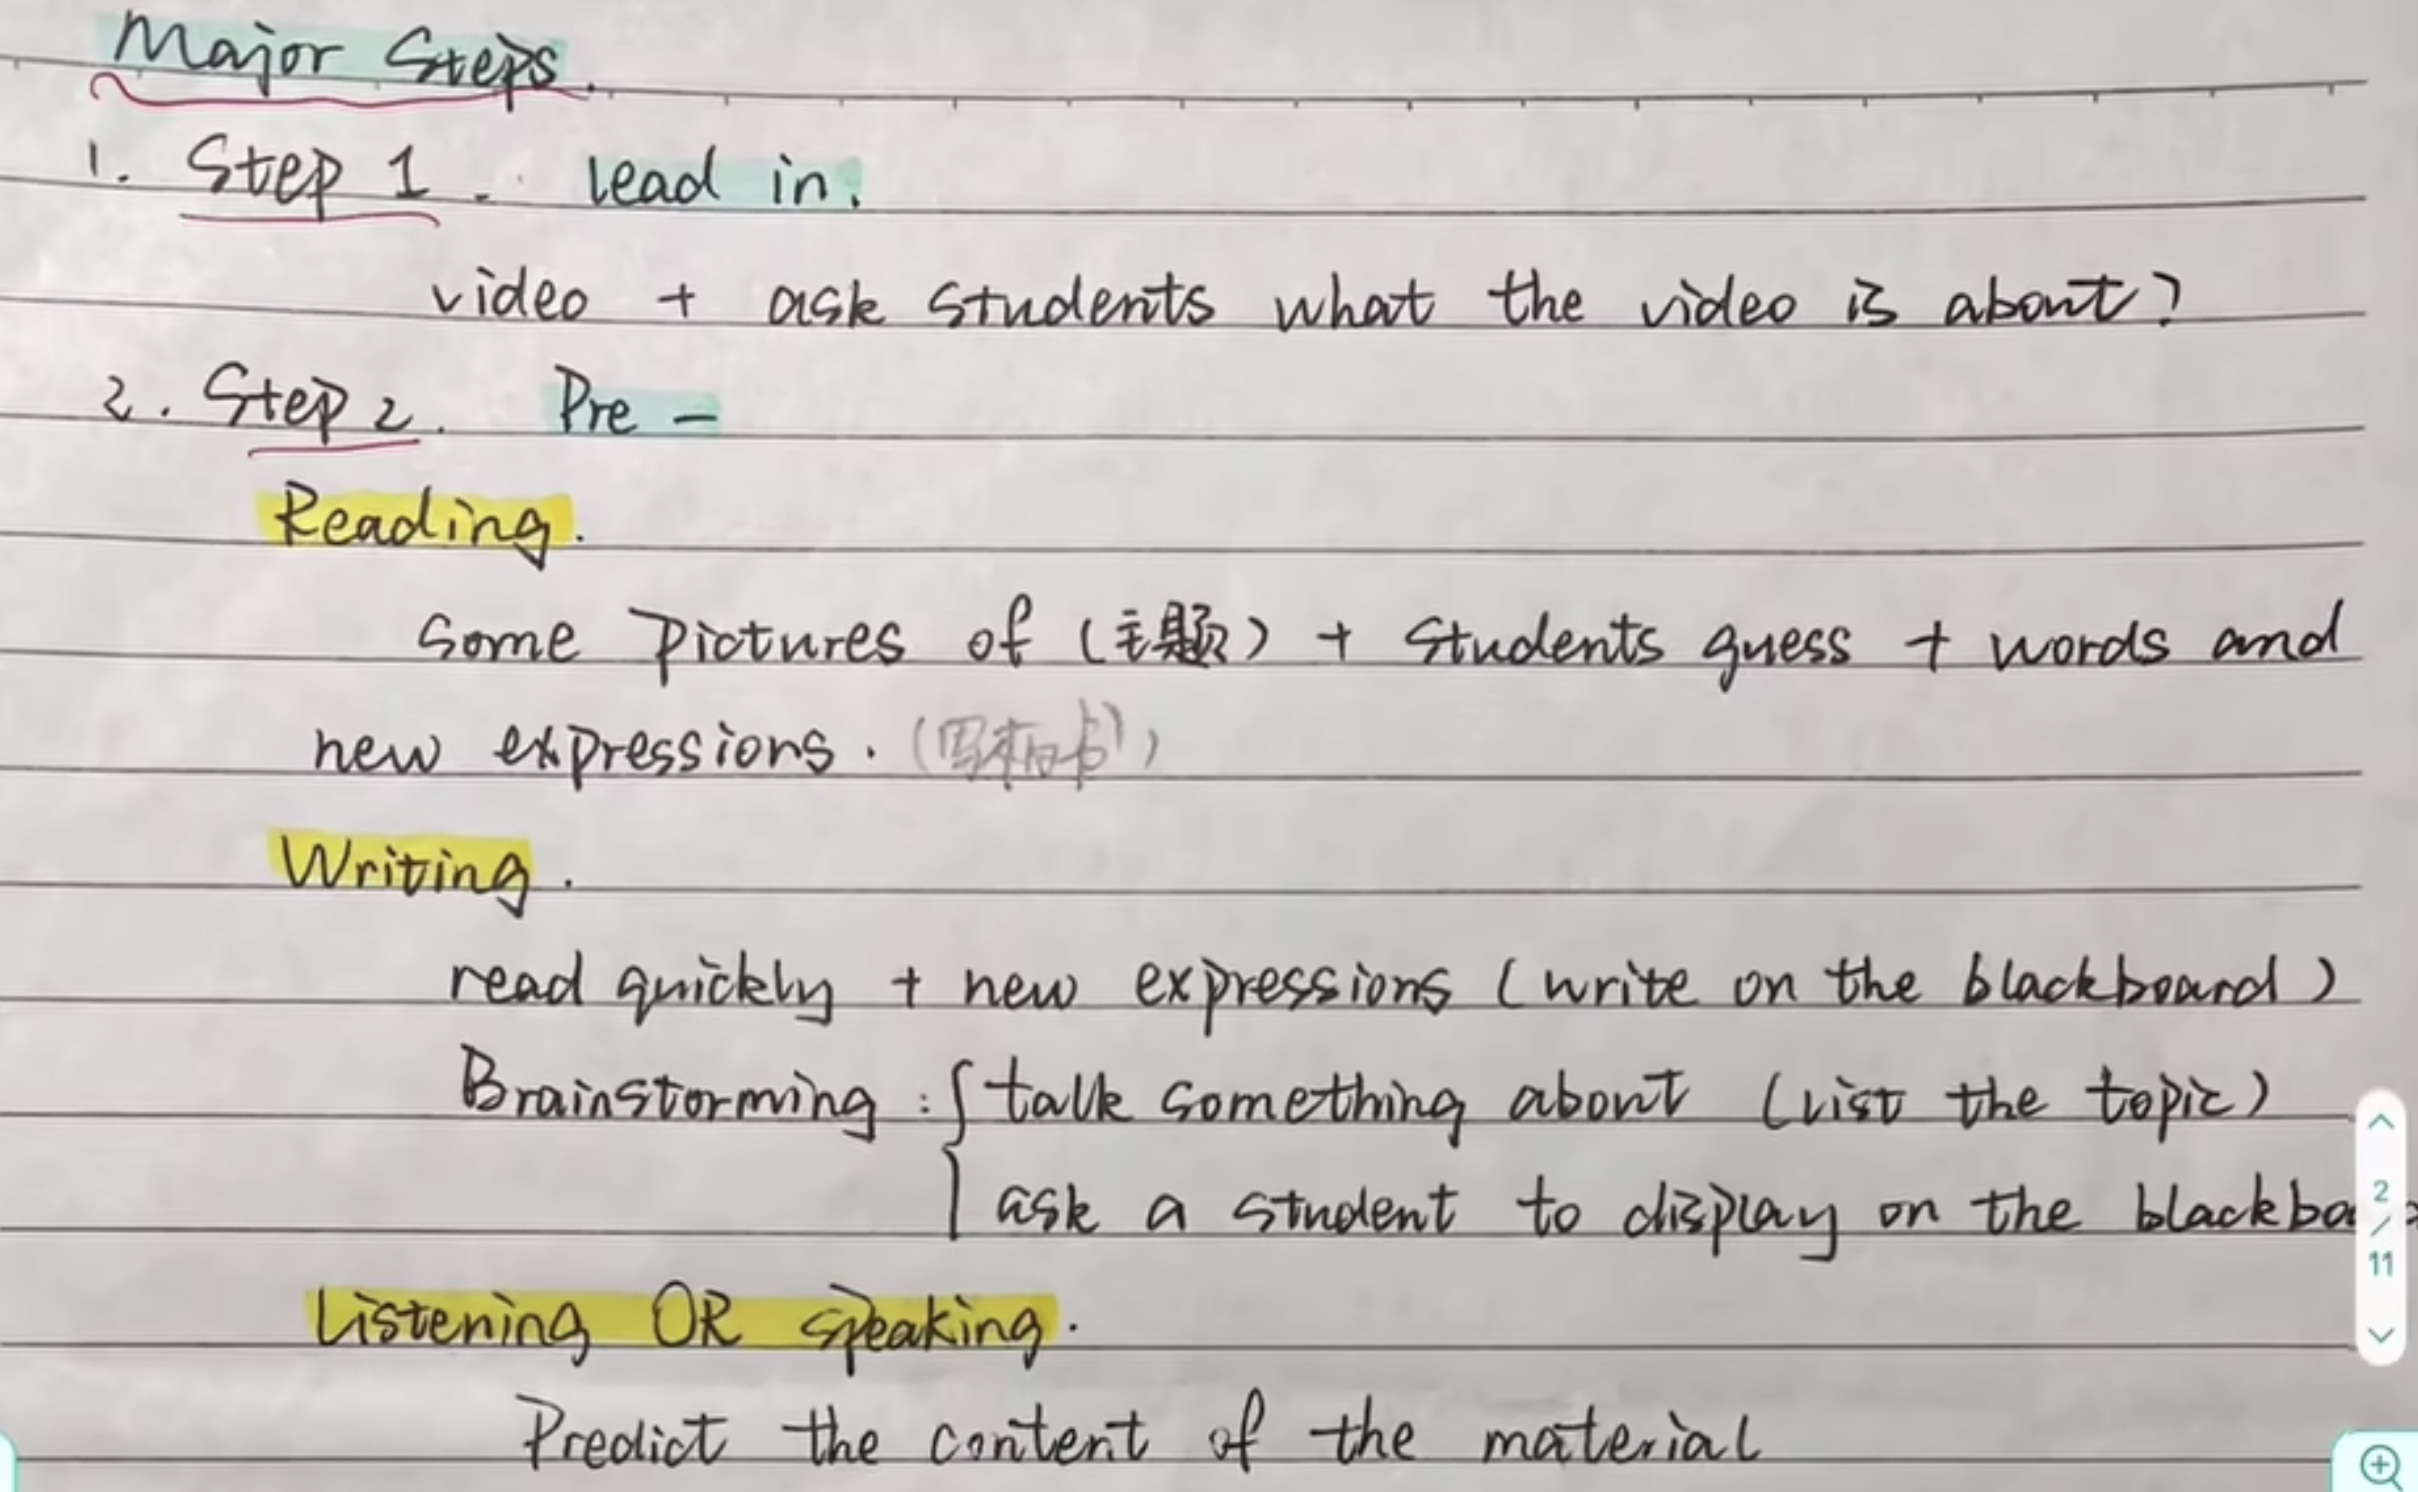 Major Steps.
1. Step 1. lead in.
video + ask students what the video is about?
2. Step 2. Pre -
Reading.
Some pictures of (主题) + students guess + words and
new expressions. (写板书)
Writing.
read quickly + new expressions (write on the blackboard)
Brainstorming: { talk something about (list the topic)
ask a student to display on the blackboa
Listening OR speaking.
Predict the content of the material
2
/
11